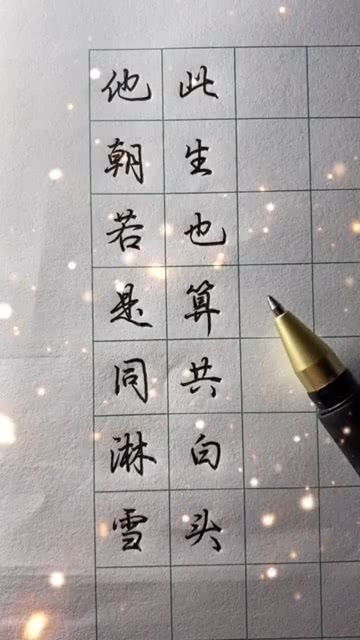 他朝若是同淋雪
此生也算共白头